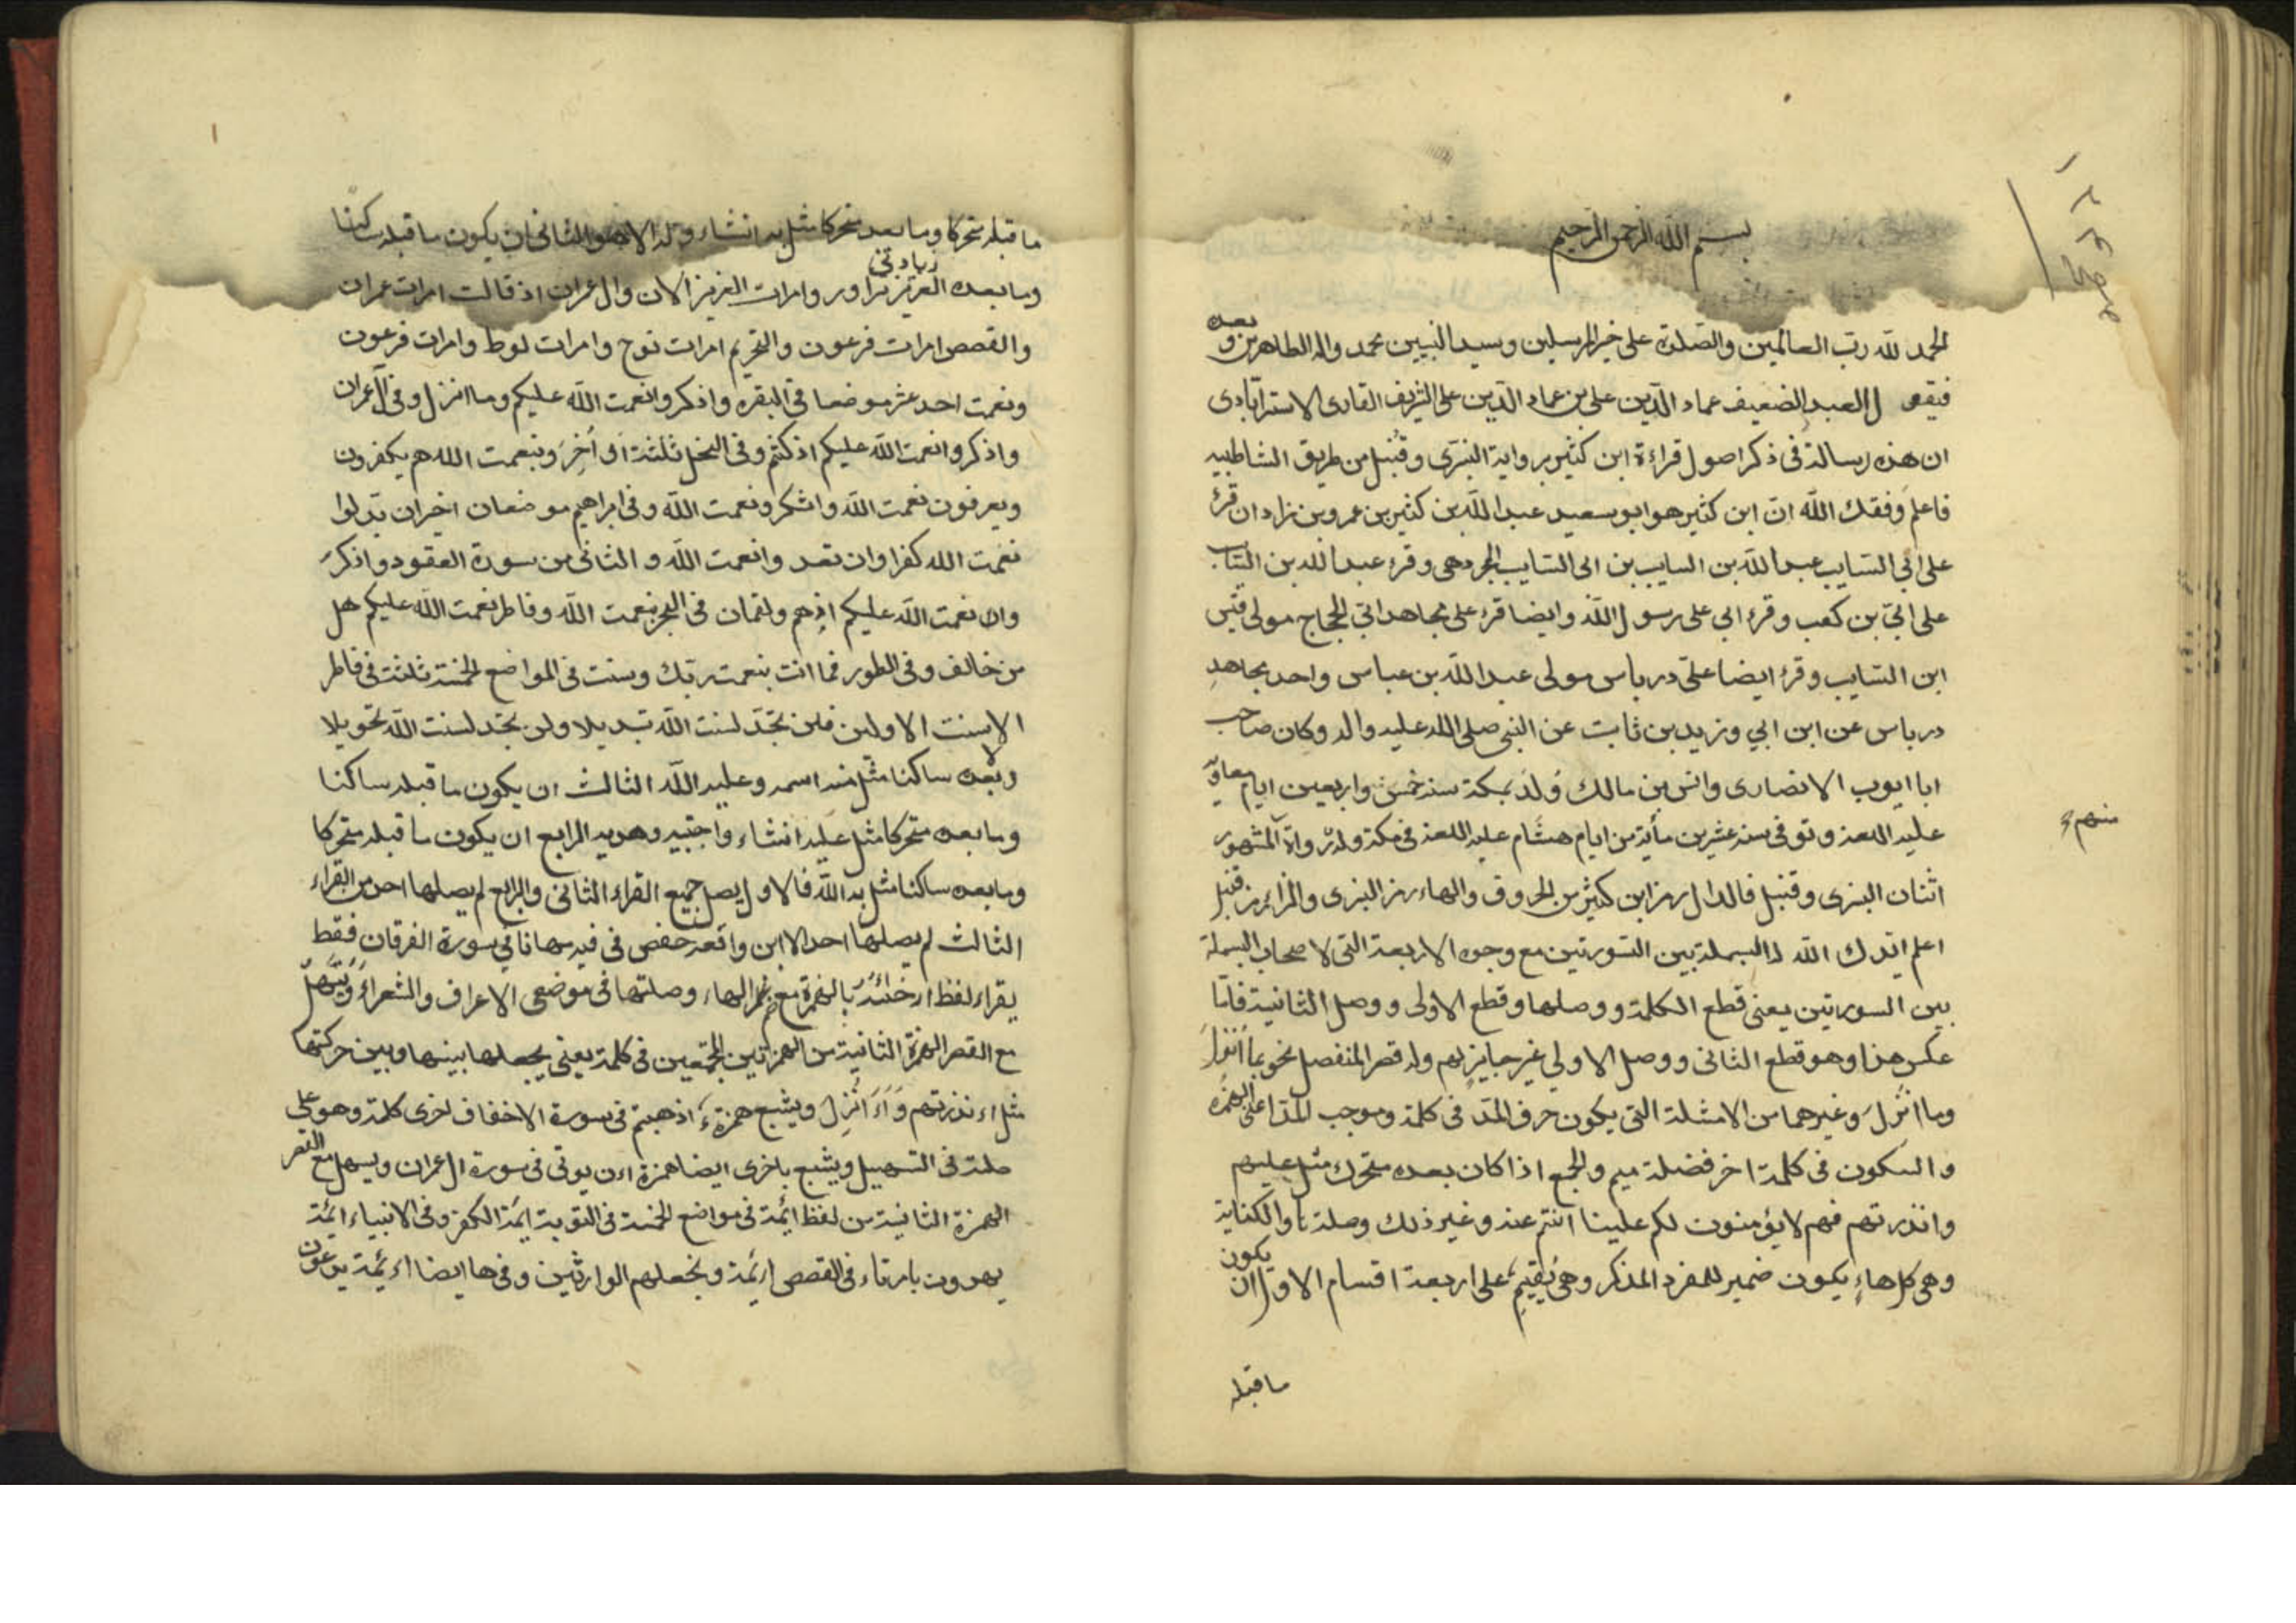 بسم الله الرحمن الرحيم
الحمد لله رب العالمين والصلوة على خير المرسلين وسيد النبيين محمد واله الطاهرين وبعد
فيقول العبد الضعيف عماد الدين على بن عماد الدين على الشريف القارى الاسترآبادى
ان هذه رسالة فى ذكر اصول قراءة ابن كثير برواية البزى وقنبل من طريق الشاطبيه
فاعلم وفقك الله ان ابن كثير هو ابو سعيد عبد الله بن كثير بن عمرو بن زادان قرء
على ابي السايب عبد الله بن السايب بن ابى السايب وقرء عبد الله بن السايب
على ابي بن كعب وقرء ابي على رسول الله وايضا قرء على مجاهد ابي الحجاج مولى قيس
ابن السايب وقرء ايضا على درباس مولى عبد الله بن عباس واحد مجاهد
درباس عن ابن ابي وزيد بن ثابت عن النبى صلى الله عليه واله وكان صاحب
ابا ايوب الانصارى وانس بن مالك ولد بمكة سنه خمس واربعين ايام معاوية
عليه اللعنه وتوفى سنه عشرين مأية من ايام هشام عليه اللعنه فى مكة وله رواة المشهور
منهم
اثنان البزى وقنبل فالدال رمز ابن كثير من الحروف والهاء رمز البزى والزاء رمز قنبل
اعلم ايدك الله البسملة بين السورتين مع وجوه الاربعة التى لاصحاب البسملة
بين السورتين يعنى قطع الكلمة ووصلها وقطع الاولى ووصل الثانية فاما
عكس هذا وهو قطع الثانى ووصل الاولي غير جايز لهم وله قصر المنفصل نحو بما انزل
وما انزل وغيرهما من الامثلة التى يكون حرف المد فى كلمة وموجب المد اعنى الهمزة
والسكون فى كلمة اخر فضلة ميم والجمع اذا كان بعده متحرك مثل عليهم
وانذرتهم فهم لا يؤمنون لكم علينا انتم عنه وغير ذلك وصلة والكناية
وهى كل هاء يكون ضمير للمفرد المذكر وهى على اربعة اقسام الاول ان يكون
ما قبله
ما قبله متحركا وما بعده متحركا مثل به انشاء وله الا هو الثانى ان يكون ما قبله ساكنا
وما بعده العزيز تراود وامرات العزيز الان وال عمران اذ قالت امرات عمران
والقصص امرات فرعون والتحريم امرات نوح وامرات لوط وامرات فرعون
ونعمت احد عشر موضعا فى البقره واذكروا نعمت الله عليكم وما انزل وفى آل عمران
واذكروا نعمت الله عليكم اذ كنتم وفى النحل ثلثة وبنعمت الله هم يكفرون
ويعرفون نعمت الله واشكرو نعمت الله وفى ابراهيم موضعان اخيران بدلوا
نعمت الله كفرا وان تعدوا نعمت الله والثانى من سورة العقود واذكر
نعمت الله عليكم اذ هم ولقمان فى البحر بنعمت الله وفاطر نعمت الله عليكم هل
من خالف وفى الطور فما انت بنعمت ربك وسنت فى المواضع الخمسة ثلثة فى فاطر
الا سنت الاولين فلن تجد لسنت الله تبديلا ولن تجد لسنت الله تحويلا
وبعده ساكنا مثل منه اسمه وعليه الله الثالث ان يكون ما قبله ساكنا
وما بعده متحركا مثل عليه انشاء واجتبيه وهديه الرابع ان يكون ما قبله متحركا
وما بعده ساكنا مثل به الله فالاول يصل جميع القراء الثانى والرابع لم يصلها احد من القراء
الثالث لم يصلها احد الا ابن وافعه حفص فى فيه مهانا فى سورة الفرقان فقط
يقراء لفظ ارجئه بالهمزة مع ضم الهاء وصلتها فى موضعى الاعراف والشعراء ويسهل
مع القصر الهمزة الثانية من الهمزتين المجتمعين فى كلمة يعنى يجعلها بينها وبين حركتها
مثل اءنذرتهم واءنزل ويشبع همزة ء اذهبتم فى سورة الاحقاف لخرى كلمة وهو على
صلة فى التسهيل ويشبع باخرى ايضا همزة اءن يوتى فى سورة ال عمران ويسهل مع القصر
الهمزة الثانية من لفظ ائمة فى مواضع الخمسة فى التوبة ائمة الكفر وفى الانبياء ائمة
يهدون بامرناء فى القصص ائمة ونجعلهم الوارثين وفيها ايضا ائمة يدعون